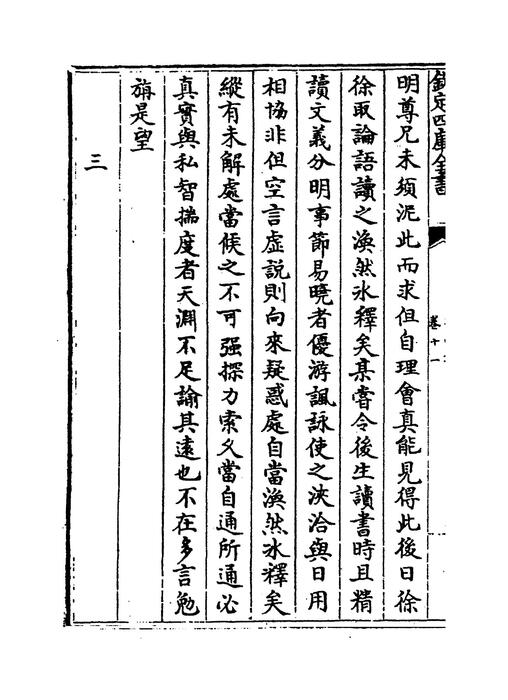 欽定四庫全書
卷十一
明尊兄未須泥此而求但自理會真能見得此後日徐
徐取論語讀之渙然冰釋矣某嘗令後生讀書時且精
讀文義分明事節易曉者優游諷詠使之浹洽與日用
相協非但空言虛說則向來疑惑處自當渙然冰釋矣
縱有未解處當候之不可强探力索久當自通所通必
真實與私智揣度者天淵不足諭其遠也不在多言勉
旃是望
三